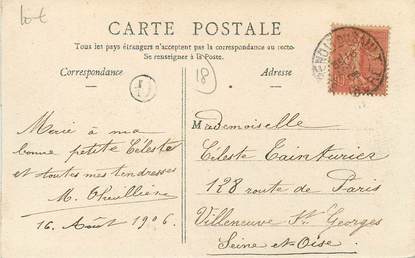 CARTE POSTALE
Tous les pays étrangers n'acceptent pas la correspondance au recto.
Se renseigner à la Poste.
Correspondance
Adresse
8
Merci à ma
bonne petite Céleste
et toutes mes tendresses
M.
16 Août 1906
Mademoiselle
Céleste Tainturier
128 route de Paris
Villeneuve St Georges
Seine et Oise.